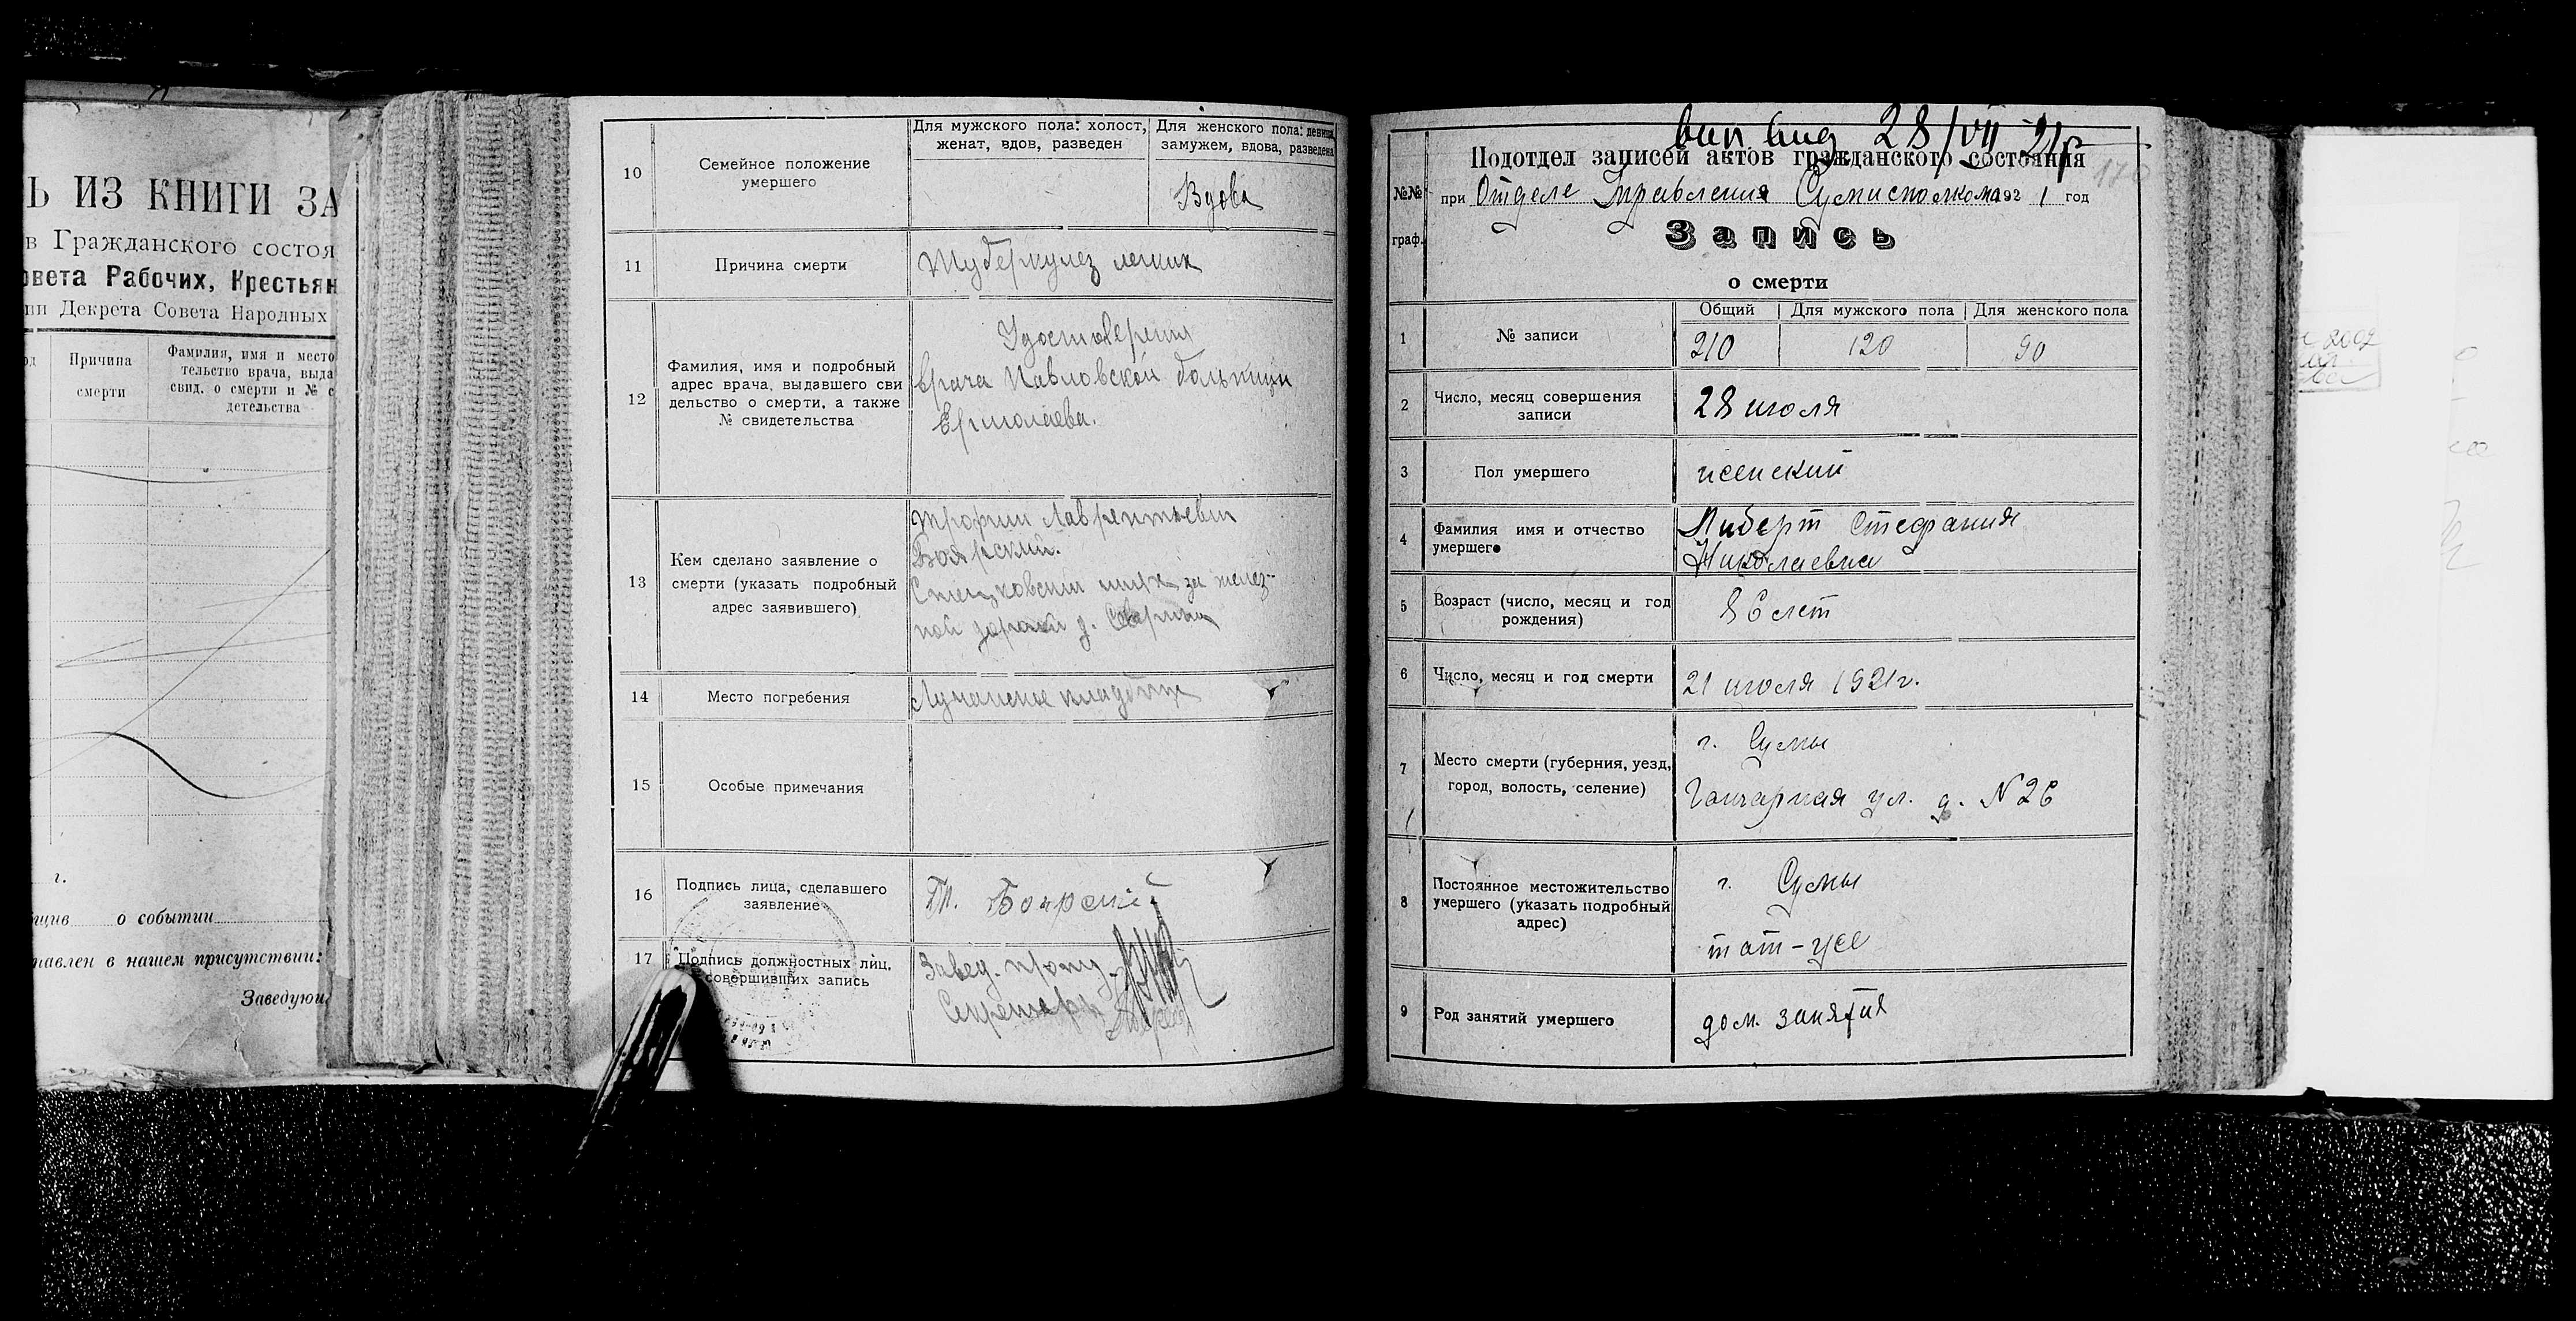 Ь ИЗ КНИГИ ЗА
в Гражданского состоя
овета Рабочих, Крестьян
ии Декрета Совета Народных
Причина смерти
Фамилия, имя и место
тельство врача, выда
свид. о смерти и № с
детельства
г.
о событии
тавлен в нашем присутствии:
Заведующ
10
Семейное положение
умершего
Для мужского пола: холост,
женат, вдов, разведен
Для женского пола: девица,
замужем, вдова, разведена
Вдова
11
Причина смерти
Туберкулез легких
12
Фамилия, имя и подробный
адрес врача, выдавшего сви
дельство о смерти, а также
№ свидетельства
Удостоверения
врача Павловской больницы
Ермолаева.
13
Кем сделано заявление о
смерти (указать подробный
адрес заявившего)
Трофим Лаврентьевич
Боярский.
за желез-
ной дорогой д.
14
Место погребения
15
Особые примечания
16
Подпись лица, сделавшего
заявление
Т. Боярский
17
Подпись должностных лиц,
совершивших запись
Завед.
Секретарь
28/VII 21г
170
Подотдел записей актов гражданского состояния
№№
граф.
при Отделе Управления Сумисполкома 192 1 год
Запись
о смерти
1
№ записи
Общий
Для мужского пола
Для женского пола
210
120
90
2
Число, месяц совершения
записи
28 июля
3
Пол умершего
женский
4
Фамилия имя и отчество
умершего
Либерт Стефания
Николаевна
5
Возраст (число, месяц и год
рождения)
86 лет
6
Число, месяц и год смерти
21 июля 1921г.
7
Место смерти (губерния, уезд,
город, волость, селение)
г. Сумы
Гончарная ул. д. N 26
8
Постоянное местожительство
умершего (указать подробный
адрес)
г. Сумы
там-же
9
Род занятий умершего
дом. занятия